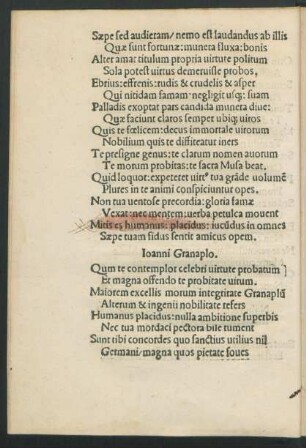 Sæpe sed audieram/ nemo est laudandus ab illis
Quæ sunt fortunæ: munera fluxa: bonis
Alter amat titulum propria virtute politum
Sola potest virtus demeruisse probos,
Ebrius: effrenis: rudis & crudelis & asper
Qui nitidam famam negligit usq; suam
Palladis exoptat pars candida munera diue:
Quæ faciunt claros semper ubiq; uiros
Quis te fœlicem: decus immortale uirorum
Nobilium quis te diffiteatur iners
Te presigne genus: te clarum nomen auorum
Te morum probitas: te sacra Musa beat.
Quid loquor: expeteret uirtꝰ tua grāde volumē
Plures in te animi conspiciuntur opes.
Non tua uentose precordia: gloria famæ
Vexat: nec mentem: uerba petulca mouent
Mitis es humanus: placidus: iucūdus in omnes
Sæpe tuam sidus sentit amicus opem.
Ioanni Granaplo.
Qum te contemplor celebri uirtute probatum
Et magna offendo te probitate uirum.
Maiorem excellis morum integritate Granaplū
Alterum & ingenii nobilitate refers
Humanus placidus: nulla ambitione superbis
Nec tua mordaci pectora bile tument
Sunt tibi concordes quo sanctius utilius nil
Germani/ magna quos pietate foues